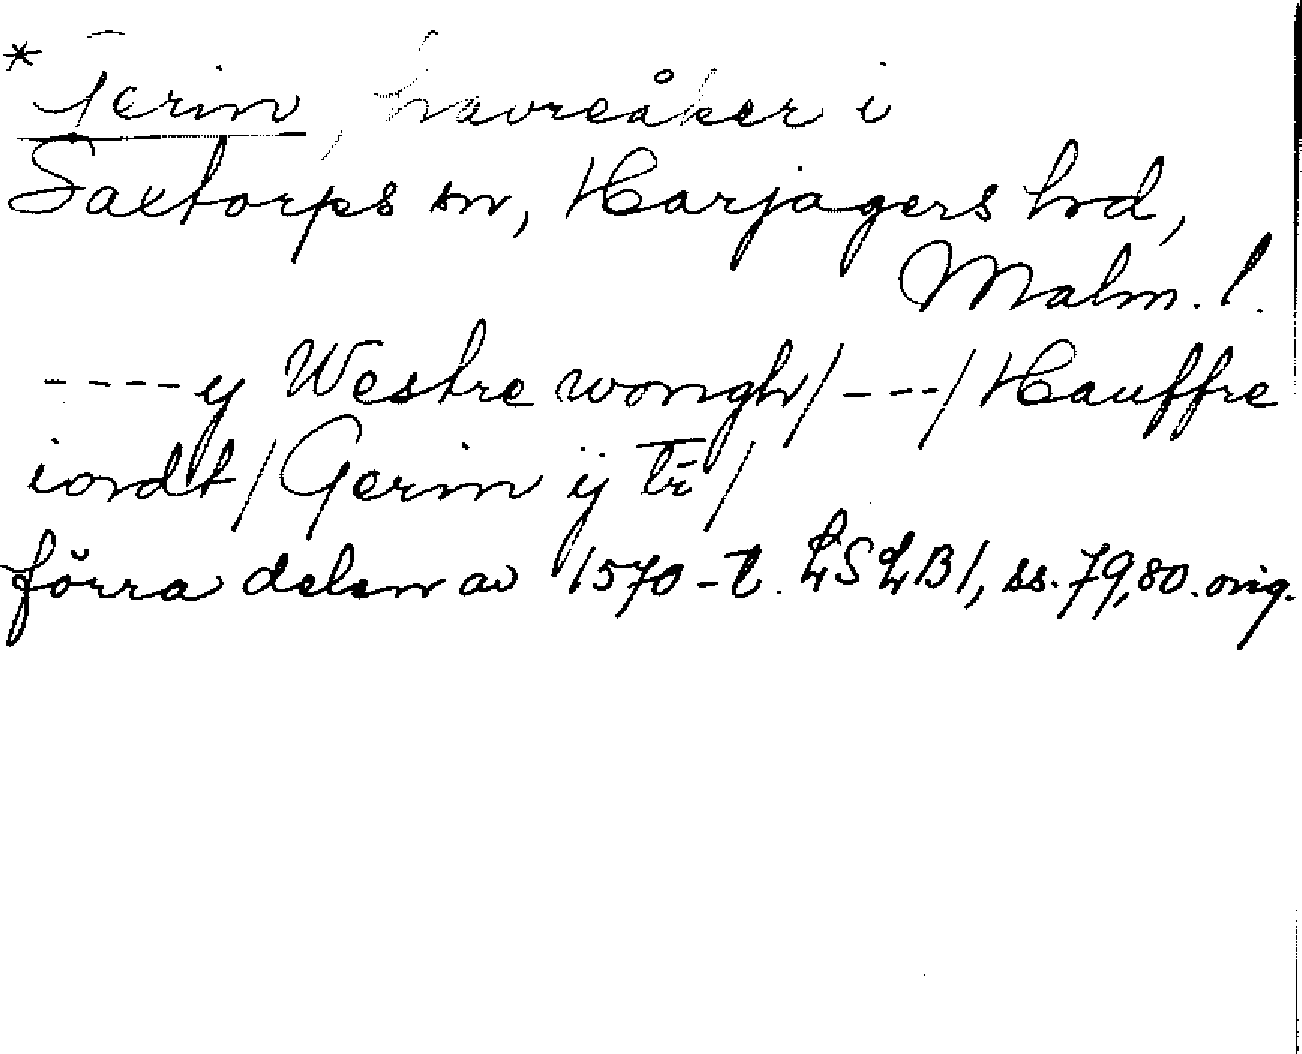 * Gerin, havreåker i
Saxtorps sn, Harjagers hd,
Malm. l.
----y Westre wongh/---/Hauffre
iordt/Gerin ij
förra delen av 1570-t. LSLB1, ss. 79,80. orig.